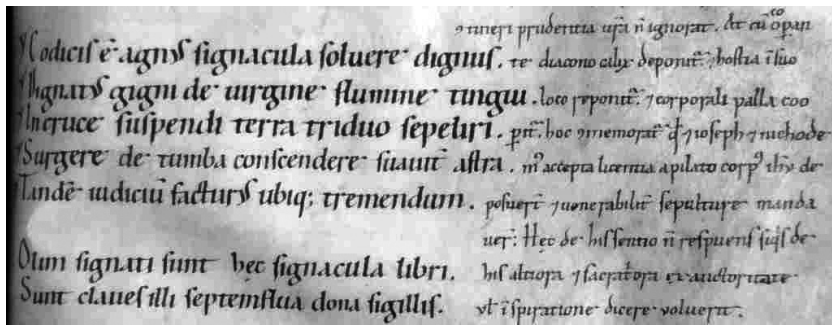 Codicis ē agnus signacula soluere dignus.
Dignatus gigni de uirgine flumine tingui.
In cruce suspendi terra triduo sepeliri.
Surgere de tumba conscendere astra.
Tandē iudiciū facturus ubiq; tremendum.
Olim signati sunt hęc signacula libri.
Sunt claues illi septemflua dona sigillis.
ꝯtineri prudentia ur̄a n̄ ignorat. At cū coopan
te diacono calix deponit̄. ⁊ hostia ī suo
loco reponit̄. ⁊ corporali palla coo
ꝑit̄. hoc ꝯmemorat̄ qđ ioseph ⁊ nichode
mꝰ accepta licentia a pilato corpꝰ ihū de
posuer̄ ⁊ uenerabilit̄ sepulture manda
uer̄. Hęc de his sentio n̄ respuens siqͥs de
his altiora ⁊ sacratiora ex auctoritate
ul̄ īspiratione dicere uoluerit.